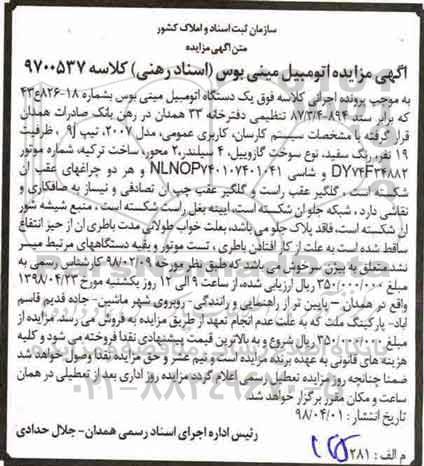 سازمان ثبت اسناد و املاک کشور
متن آگهی مزایده
آگهی مزایده اتومبیل مینی بوس (اسناد رهنی) کلاسه ۹۷۰۰۵۳۷
به موجب پرونده اجرائی کلاسه فوق یک دستگاه اتومبیل مینی بوس بشماره ۱۸-۸۲۶ع۴۳
که برابر سند ۸۹۴-۸۷/۳/۴ تنظیمی دفترخانه ۳۳ همدان در رهن بانک صادرات همدان
قرار گرفته با مشخصات سیستم کارسان، کاربری عمومی، مدل ۲۰۰۷، تیپ J۹، ظرفیت
۱۹ نفره، رنگ سفید، نوع سوخت گازوییل، ۴ سیلندر، ۲ محور، ساخت ترکیه، شماره موتور
DY۷۴F۲۴۸۸۲ و شاسی NLNOP۷۴۰۱۰۷۴۰۱۰۴۱ و هر دو چراغهای عقب آن
شکسته است، گلگیر عقب راست و گلگیر عقب چپ آن تصادفی و نیاز به صافکاری و
نقاشی دارد، شبکه جلو آن شکسته است، آیینه بغل راست شکسته است، منبع شیشه شور
آن شکسته است، فاقد پلاک جلو می باشد، بعلت خواب طولانی مدت باطری آن از حیز انتفاع
ساقط شده است به علت از کار افتادن باطری، تست موتور و بقیه دستگاههای مرتبط میسر
نشد، متعلق به بیژن سرخوش می باشد که طبق نظر مورخه ۹۸/۰۲/۰۹ کارشناس رسمی به
مبلغ ۳۵۰/۰۰۰/۰۰۰ ریال ارزیابی شده، از ساعت ۹ الی ۱۲ روز یکشنبه مورخ ۱۳۹۸/۰۴/۲۳
واقع در همدان – پایین تر از راهنمایی و رانندگی- روبروی شهر ماشین- جاده قدیم قاسم
آباد- پارکینگ ملت که به علت عدم انجام تعهد از طریق مزایده به فروش می رسد. مزایده از
مبلغ ۳۵۰/۰۰۰/۰۰۰ ریال شروع و به بالاترین قیمت پیشنهادی نقدا فروخته می شود و کلیه
هزینه های قانونی به عهده برنده مزایده است و نیم عشر و حق مزایده نقدا وصول خواهد شد
ضمنا چنانچه روز مزایده تعطیل رسمی اعلام گردد مزایده روز اداری بعد از تعطیلی در همان
ساعت و مکان مقرر برگزار خواهد شد.
تاریخ انتشار: ۹۸/۰۴/۰۱
رئیس اداره اجرای اسناد رسمی همدان- جلال حدادی
م الف: ۲۸۱